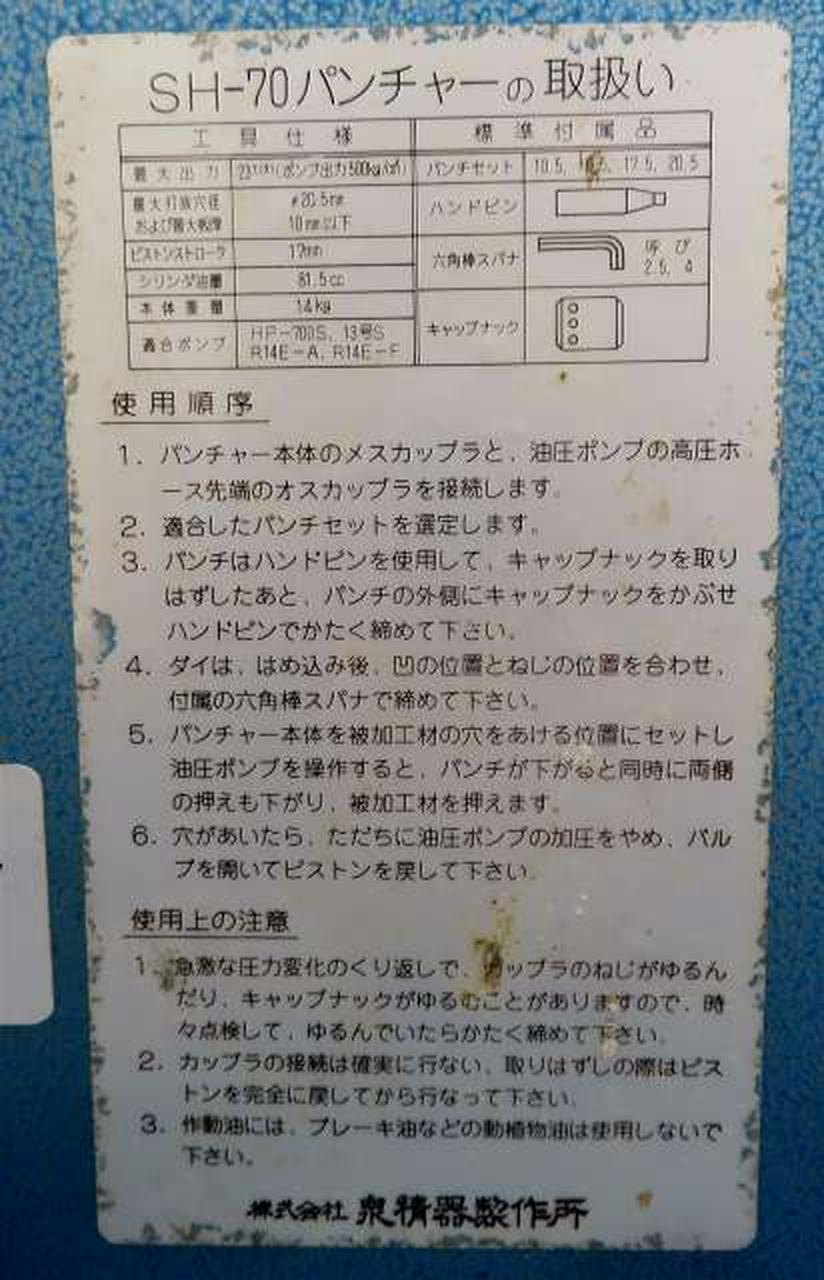 SH-70パンチャーの取扱い
工具仕様
標準付属品
最大出力 23 (ポンプ出力500kg/㎠)
パンチセット 10.5, 17.5, 20.5
最大打抜穴径 φ20.5mm
および最大板厚 10mm以下
ハンドピン
ピストンストローク 17mm
六角棒スパナ 呼び
2.5, 4
シリンダ油量 81.5cc
本体重量 14kg
キャップナック
適合ポンプ HP-700S, 13号S
R14E-A, R14E-F
使用順序
1. パンチャー本体のメスカップラと、油圧ポンプの高圧ホ
ース先端のオスカップラを接続します。
2. 適合したパンチセットを選定します。
3. パンチはハンドピンを使用して、キャップナックを取り
はずしたあと、パンチの外側にキャップナックをかぶせ
ハンドピンでかたく締めて下さい。
4. ダイは、はめ込み後、凹の位置とねじの位置を合わせ、
付属の六角棒スパナで締めて下さい。
5. パンチャー本体を被加工材の穴をあける位置にセットし
油圧ポンプを操作すると、パンチが下がると同時に両側
の押えも下がり、被加工材を押えます。
6. 穴があいたら、ただちに油圧ポンプの加圧をやめ、バル
ブを開いてピストンを戻して下さい。
使用上の注意
1. 急激な圧力変化のくり返しで、カップラのねじがゆるん
だり、キャップナックがゆるむことがありますので、時
々点検して、ゆるんでいたらかたく締めて下さい。
2. カップラの接続は確実に行ない、取りはずしの際はピス
トンを完全に戻してから行なって下さい。
3. 作動油には、ブレーキ油などの動植物油は使用しないで
下さい。
株式会社 泉精器製作所